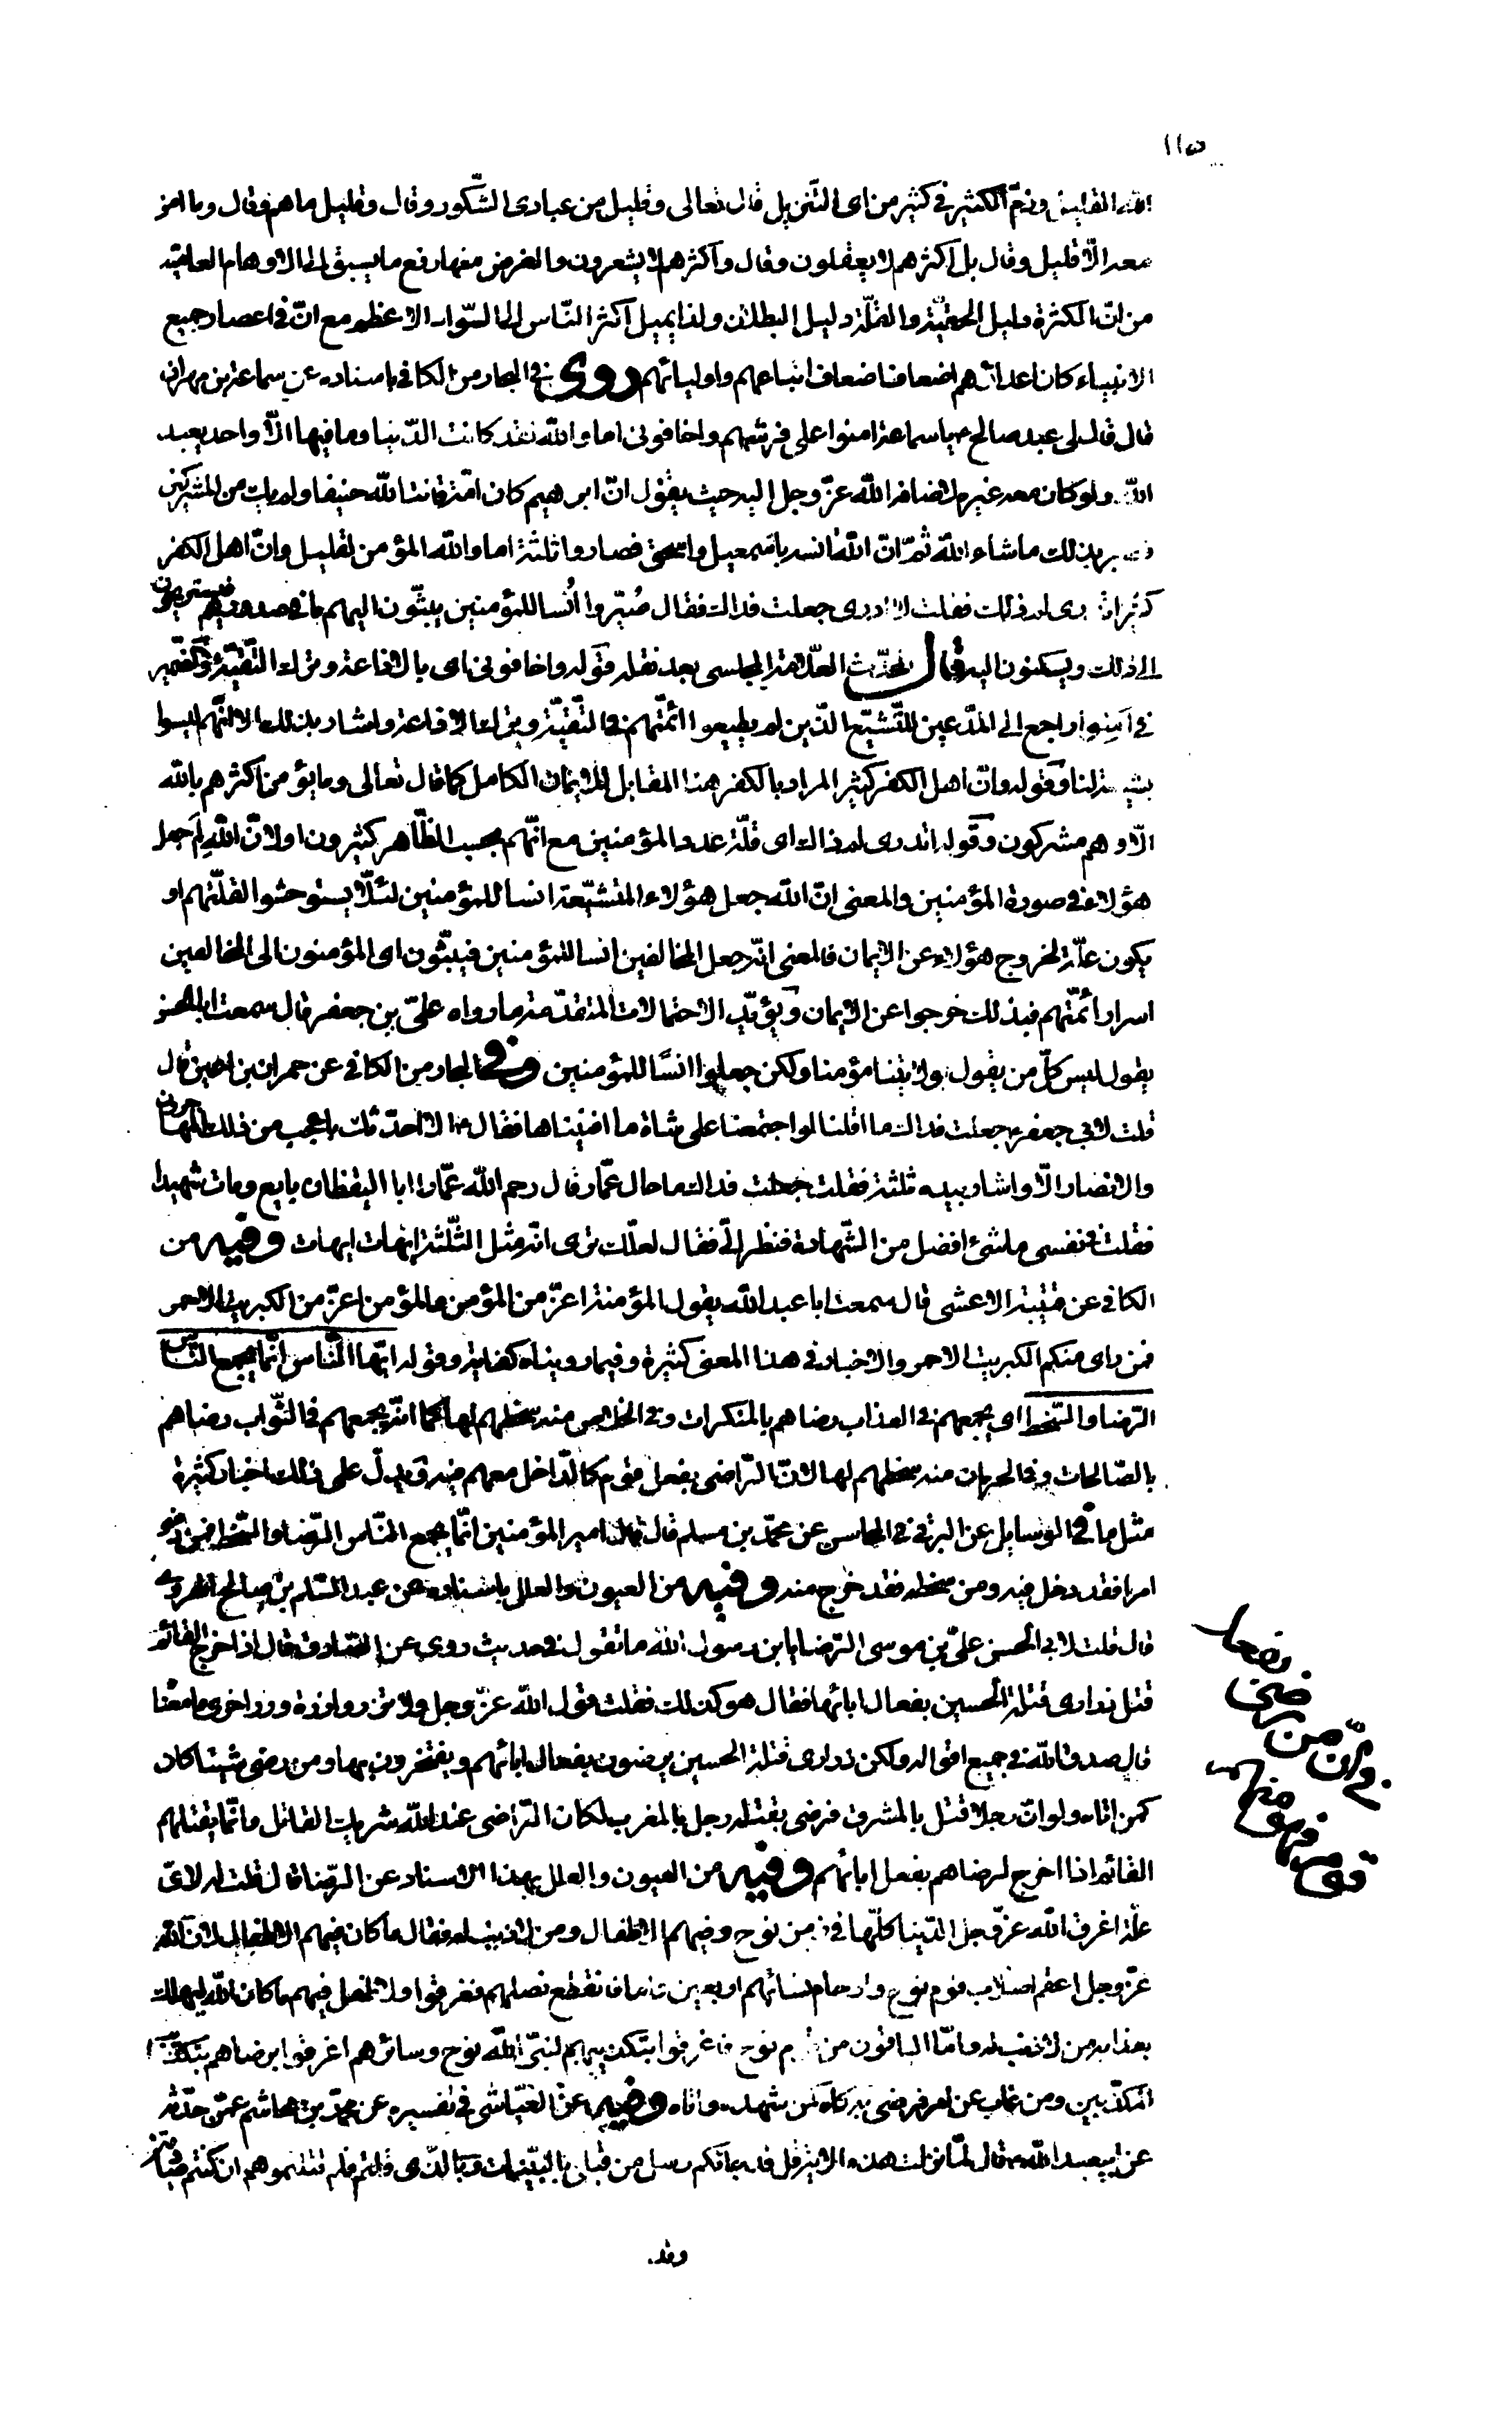 ١١٥
القليل وذمّ الكثير في كثير من اى التّنزيل قال تعالى وقليل من عبادى الشّكور وقال وقليل ما هم وقال وما امن
معه الّا قليل وقال بل اكثرهم لا يعقلون وقال واكثرهم لا يشعرون والغرض منها رفع ما يسبق الى الاوهام العاميّة
من انّ الكثرة دليل الحقيّة والقلّة دليل البطلان ولذا يميل اكثر النّاس الى السّواد الاعظم مع انّ في اعصار جميع
الانبياء كان اعدائهم اضعاف اضعاف اتباعهم واوليائهم روى في البحار من الكافي باسناده عن سماعة بن مهران
قال قال لى عبد صالح يا سماعة امنوا على فرشهم واخافونى اما والله لقد كانت الدّنيا وما فيها الّا واحد يعبد
الله ولو كان معه غيره لاضافه الله عزّ وجل اليه حيث يقول انّ ابرهيم كان امّة قانتا لله حنيفا ولم يك من المشركين
بذلك ما شاء الله ثمّ انّ الله انسه باسمعيل واسحق فصاروا ثلثة اما والله المؤمن لقليل وانّ اهل الكفر
كثير اتدرى لم ذلك فقلت لا ادرى جعلت فداك فقال صُيّروا اُنسا للمؤمنين يبثّون اليهم ما في صدورهم فيستريحون
الى ذلك ويسكنون اليه قال المحدّث العلّامة المجلسى بعد نقله قوله واخافونى اى بالاذاعة وترك التقيّة والضّمير
في آمنوا راجع الى المدّعين للتّشيّع الّذين لم يطيعوا ائمّتهم في التّقيّة وترك الاذاعة واشار بذلك الى انّهم ليسوا
بشيعة لنا وقوله وانّ اهل الكفر كثير المراد بالكفر هنا المقابل للايمان الكامل كما قال تعالى وما يؤمن اكثرهم بالله
الّا وهم مشركون وقوله اتدرى لم ذاك اى قلّة عدد المؤمنين مع انّهم بحسب الظّاهر كثيرون او لانّ الله لم جعل
هؤلاء في صورة المؤمنين والمعنى انّ الله جعل هؤلاء المتشيّعة انسا للمؤمنين لئلّا يستوحشوا لقلّتهم او
يكون علّة لخروج هؤلاء عن الايمان فالمعنى انّه جعل المخالفين انسا للمؤمنين فيبثّون اى المؤمنون الى المخالفين
اسرار ائمّتهم فبذلك خرجوا عن الايمان ويؤيّد الاحتمالات المتقدّمة ما رواه علىّ بن جعفر قال سمعت ابا الحسن
يقول ليس كلّ من يقول بولايتنا مؤمنا ولكن جعلوا انسًا للمؤمنين وفى البحار من الكافي عن حمران بن اعين قال
قلت لابي جعفر جعلت فداك ما اقلّنا لو اجتمعنا على شاة ما افنيناها فقال الا احدّثك باعجب من ذلك المهاجرون
والانصار الّا واشار بيده ثلثة فقلت جعلت فداك ما حال عمّار قال رحم الله عمّارا ابا اليقظان بايع ومات شهيدا
فقلت في نفسى ما شئ افضل من الشّهادة فنظر الىّ فقال لعلّك ترى انّه مثل الثّلثة ايهات ايهات وفيه من
الكافي عن قتيبة الاعشى قال سمعت ابا عبد الله يقول المؤمنة اعزّ من المؤمن والمؤمن اعزّ من الكبريت الاحمر
فمن راى منكم الكبريت الاحمر والاخبار في هذا المعنى كثيرة وفيما رويناه كفاية وقوله ايّها النّاس انّما يجمع النّاس
الرّضا والسّخط اى يجمعهم في العذاب رضاهم بالمنكرات وفي الخلاص منه سخطهم لها كما انّه يجمعهم في الثّواب رضاهم
بالصّالحات وفي الحرمان منه سخطهم لها لانّ الرّاضى بفعل قوم كالدّاخل معهم فيه ويدلّ على ذلك اخبار كثيرة
مثل ما في الوسايل عن البرقى في المحاسن عن محمّد بن مسلم قال قال امير المؤمنين انّما يجمع النّاس الرّضا والسّخط فمن رضى
امرا فقد دخل فيه ومن سخطه فقد خرج منه وفيه من العيون والعلل باسناده عن عبد السّلم بن صالح الهروى
قال قلت لابي الحسن علىّ بن موسى الرّضا يا بن رسول الله ما تقول في حديث روى عن الصّادق قال اذا خرج القائم
قتل ذرارى قتلة الحسين بفعال ابائها فقال هو كذلك فقلت قول الله عزّ وجل ولا تزر وازرة وزر اخرى ما معنا
قال صدق الله في جميع اقواله ولكن ذرارى قتلة الحسين يرضون بفعال ابائهم ويفتخرون بها ومن رضى شيئا كان
كمن اتاه ولو انّ رجلا قتل بالمشرق فرضى بقتله رجل بالمغرب لكان الرّاضى عند الله شريك القاتل وانّما يقتلهم
القائم اذا خرج لرضاهم بفعل ابائهم وفيه من العيون والعلل بهذا الاسناد عن الرّضا قال قلت له لاىّ
علّة اغرق الله عزّ وجل الدّنيا كلّها في زمن نوح وفيهم الاطفال ومن لا ذنب له فقال ما كان فيهم الاطفال لانّ الله
عزّ وجل اعقم اصلاب قوم نوح وارحام نسائهم اربعين عاما فانقطع نسلهم فغرقوا ولا طفل فيهم ما كان الله ليهلك
بعذابه من لا ذنب له وامّا الباقون من قوم نوح فاغرقوا بتكذيبهم لنبىّ الله نوح وسائرهم اغرقوا برضاهم بتكذيب
المكذّبين ومن غاب عن امر فرضى به كان كمن شهده واتاه وفيه عن العيّاشى في تفسيره عن محمّد بن هاشم عمّن حدّثه
عن ابيعبد الله قال لمّا نزلت هذه الاية قل قد جائكم رسل من قبلى بالبيّنات وبالّذى قلتم فلم قتلتموهم ان كنتم صادقين
وقد
وانّ من
رضى
بفعال
قوم
فهو
منهم